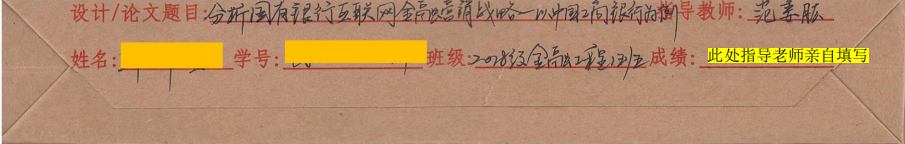 设计/论文题目:分析国有银行互联网金融营销战略—以中国工商银行为例 指导教师: 范秉肱
姓名: 学号: 班级:2018级金融工程1班 成绩: 此处指导老师亲自填写